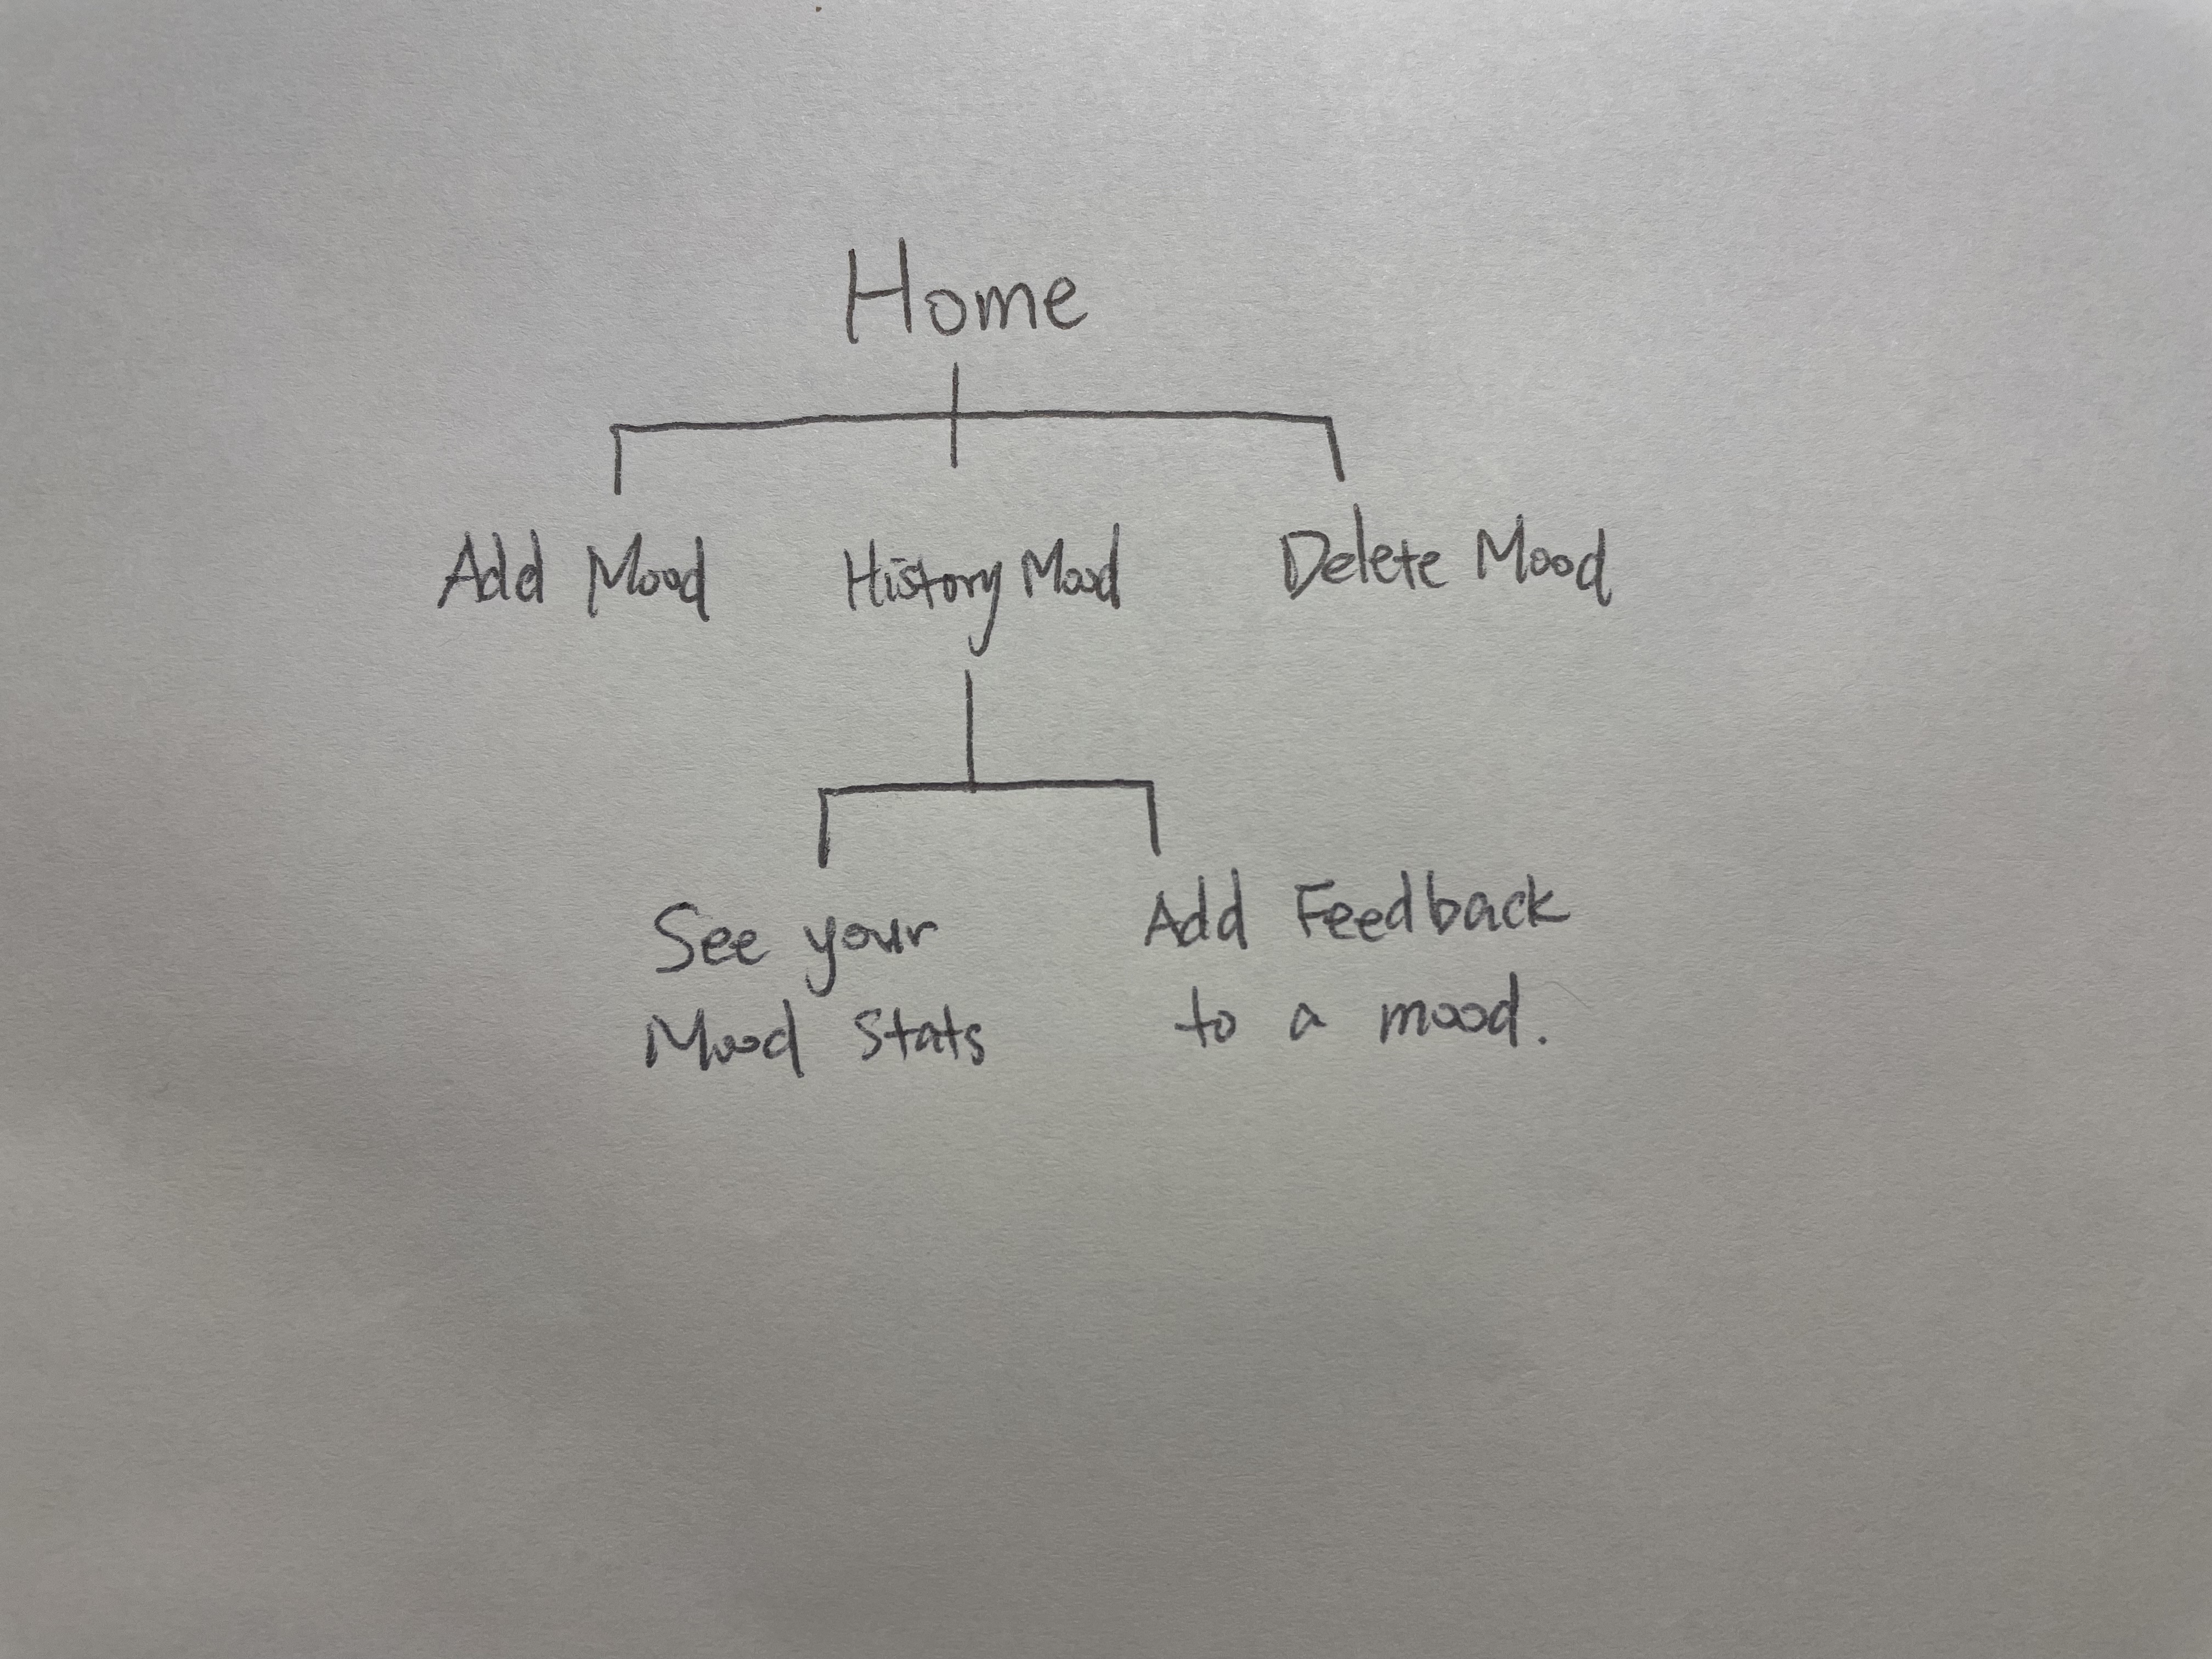 Home
Add Mood History Mood Delete Mood
See your
Mood Stats
Add Feedback
to a mood.